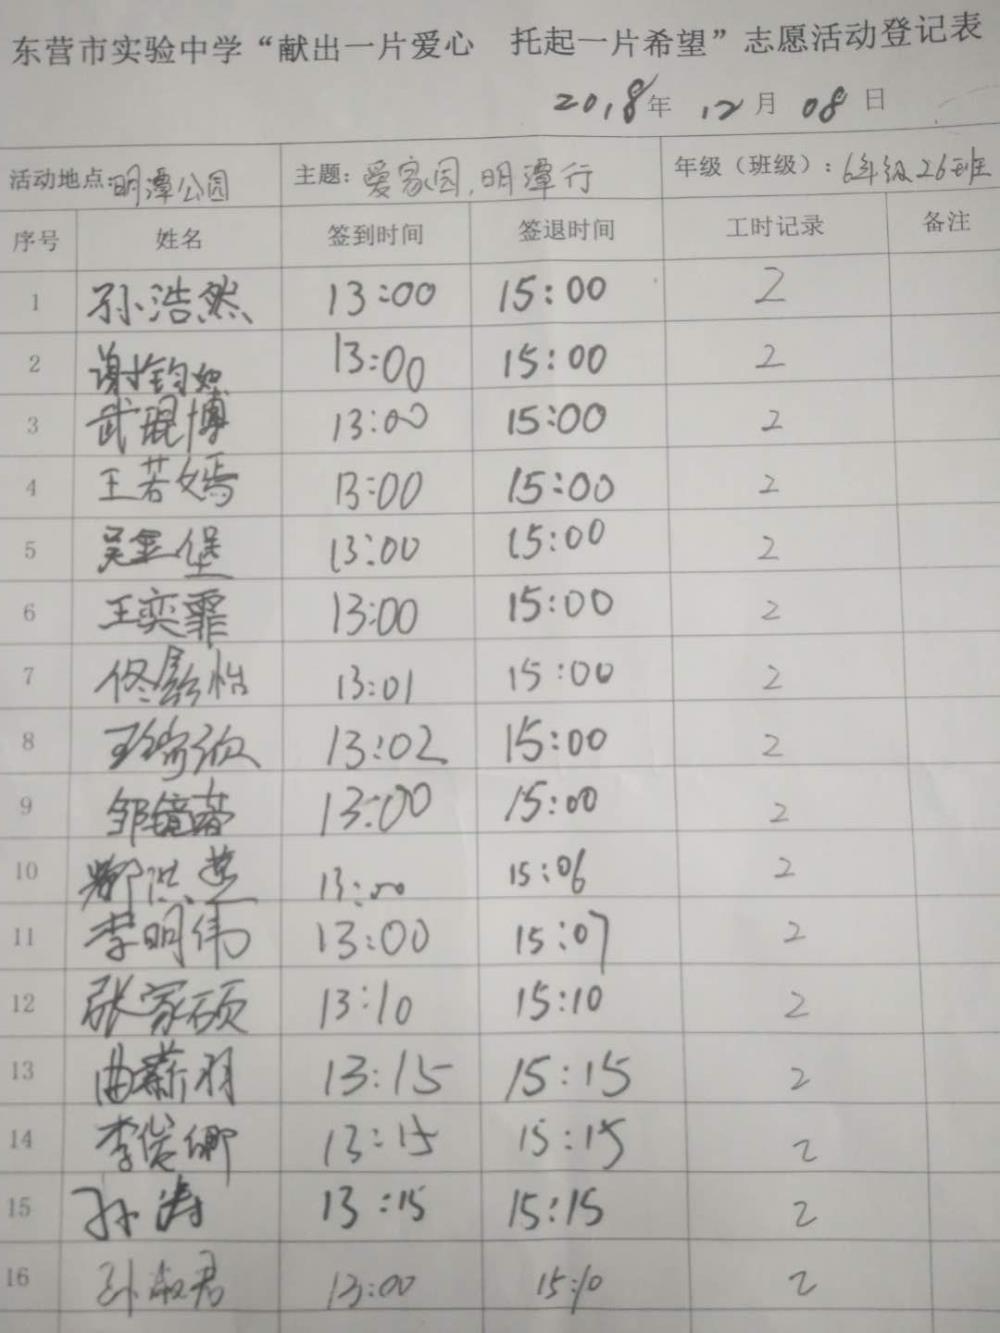 东营市实验中学“献出一片爱心 托起一片希望”志愿活动登记表
2018年 12月 08日
活动地点:明潭公园 主题:爱家园,明潭行 年级（班级）:6年级26班
序号 姓名 签到时间 签退时间 工时记录 备注
1 孙浩然 13:00 15:00 2
2 谢钧如 13:00 15:00 2
3 武琨博 13:00 15:00 2
4 王若嫣 13:00 15:00 2
5 吴金堡 13:00 15:00 2
6 王奕霏 13:00 15:00 2
7 佟影怡 13:01 15:00 2
8 13:02 15:00 2
9 邹镜蓉 13:00 15:00 2
10 洪 13:00 15:06 2
11 李明伟 13:00 15:07 2
12 张家硕 13:10 15:10 2
13 曲薪羽 13:15 15:15 2
14 李俊卿 13:15 15:15 2
15 孙涛 13:15 15:15 2
16 孙淑君 13:00 15:10 2